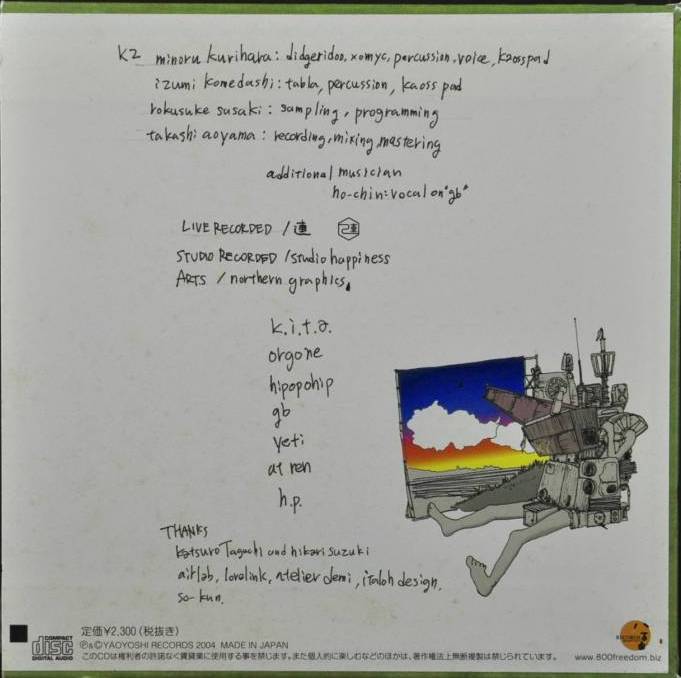 K2 minoru kurihara: didgeridoo, xomyc, percussion, voice, kaosspad
izumi komedashi: tabla, percussion, kaoss pad
rokusuke sasaki: sampling, programming
takashi aoyama: recording, mixing, mastering
additional musician
ho-chin: vocal on "gb"
LIVE RECORDED / 蓮
STUDIO RECORDED / studio happiness
ARTS / northern graphics.
k.i.t.a.
orgone
hipopohip
gb
yeti
at ren
h.p.
THANKS
katsuro Taguchi and hikari suzuki
airlab, lovelink, atelier demi, italoh design,
so-kun.
COMPACT
disc
DIGITAL AUDIO
定価¥2,300(税抜き)
Ⓟ&©YAOYOSHI RECORDS 2004 MADE IN JAPAN
このCDは権利者の許諾なく賃貸業に使用する事を禁じます。また個人的に楽しむなどのほかは、著作権法上無断複製は禁じられています。
www.800freedom.biz